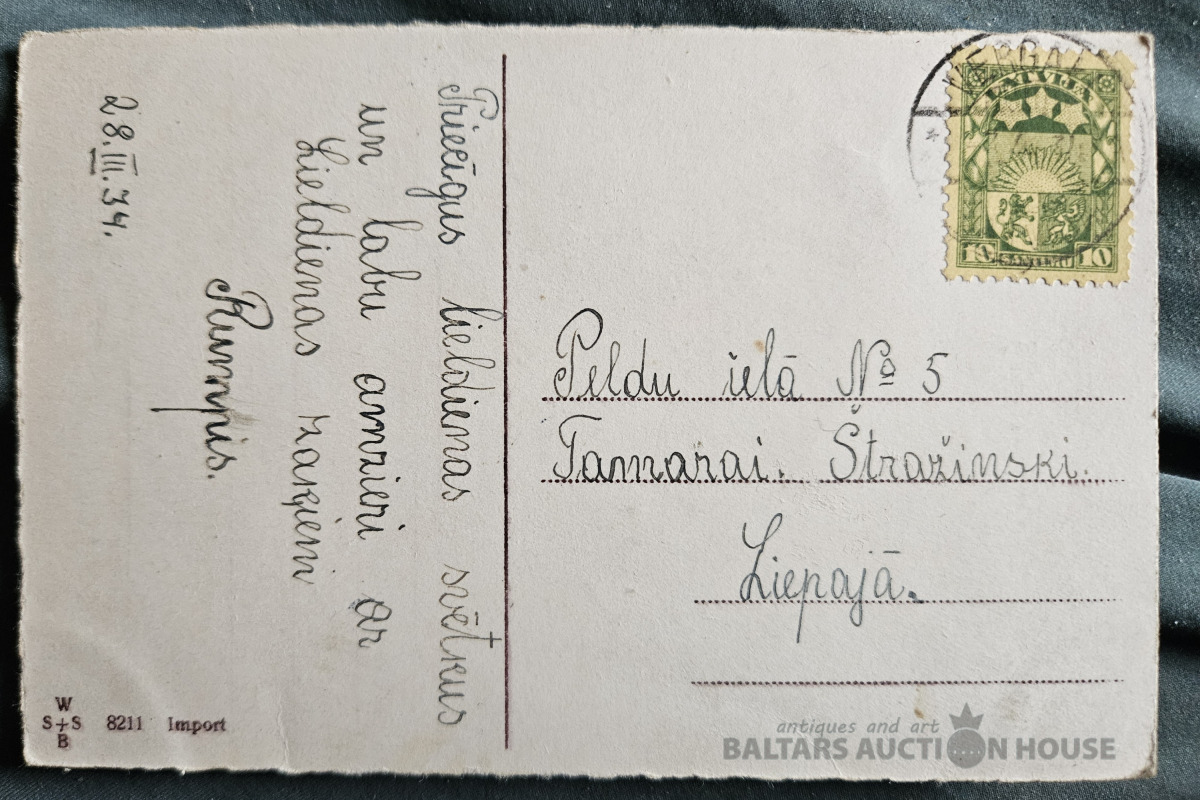 Priecīgus lieldienas svētkus
un labu amzieri ar
Lieldienas zaķiem
Rumpis.
28.III.34.
W
S+S 8211 Import
B
LATVIJA
10 SANTIMU 10
Peldu ielā № 5
Tamarai. Štražinski.
Liepajā.
antiques and art
BALTARS AUCTION HOUSE